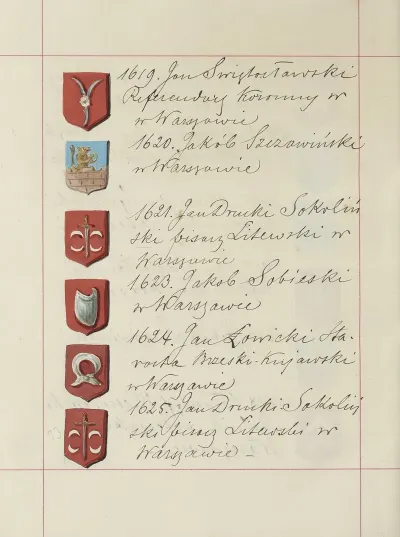 1619. Jan Świętosławski
Referendarz Koronny w
w Warszawie
1620. Jakób Szczawiński
w Warszawie
1621. Jan Drucki Sokoliń
ski pisarz Litewski w
Warszawie
1623. Jakob Sobieski
w Warszawie
1624. Jan Łowicki Sta-
rosta Brzeski-Kujawski
w Warszawie
1625. Jan Drucki Sokoliń
ski pisarz Litewski w
Warszawie –